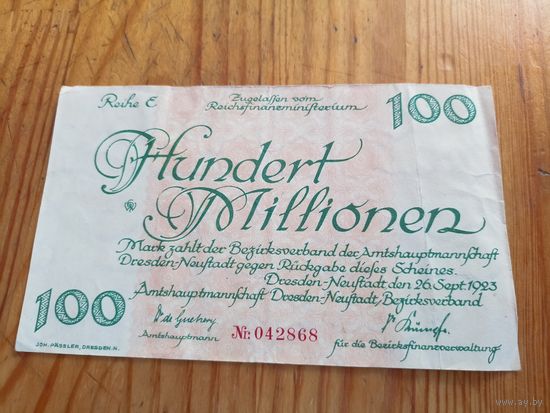 Reihe E
Zugelassen vom
Reichsfinanzministerium
100
Hundert
Millionen
Mark zahlt der Bezirksverband der Amtshauptmannschaft
Dresden-Neustadt gegen Rückgabe dieses Scheines.
Dresden-Neustadt den 26. Sept. 1923
Amtshauptmannschaft Dresden-Neustadt, Bezirksverband
100
Amtshauptmann
Nr. 042868
für die Bezirksfinanzverwaltung
JOH. PÄSSLER, DRESDEN.N.
www.ay.by